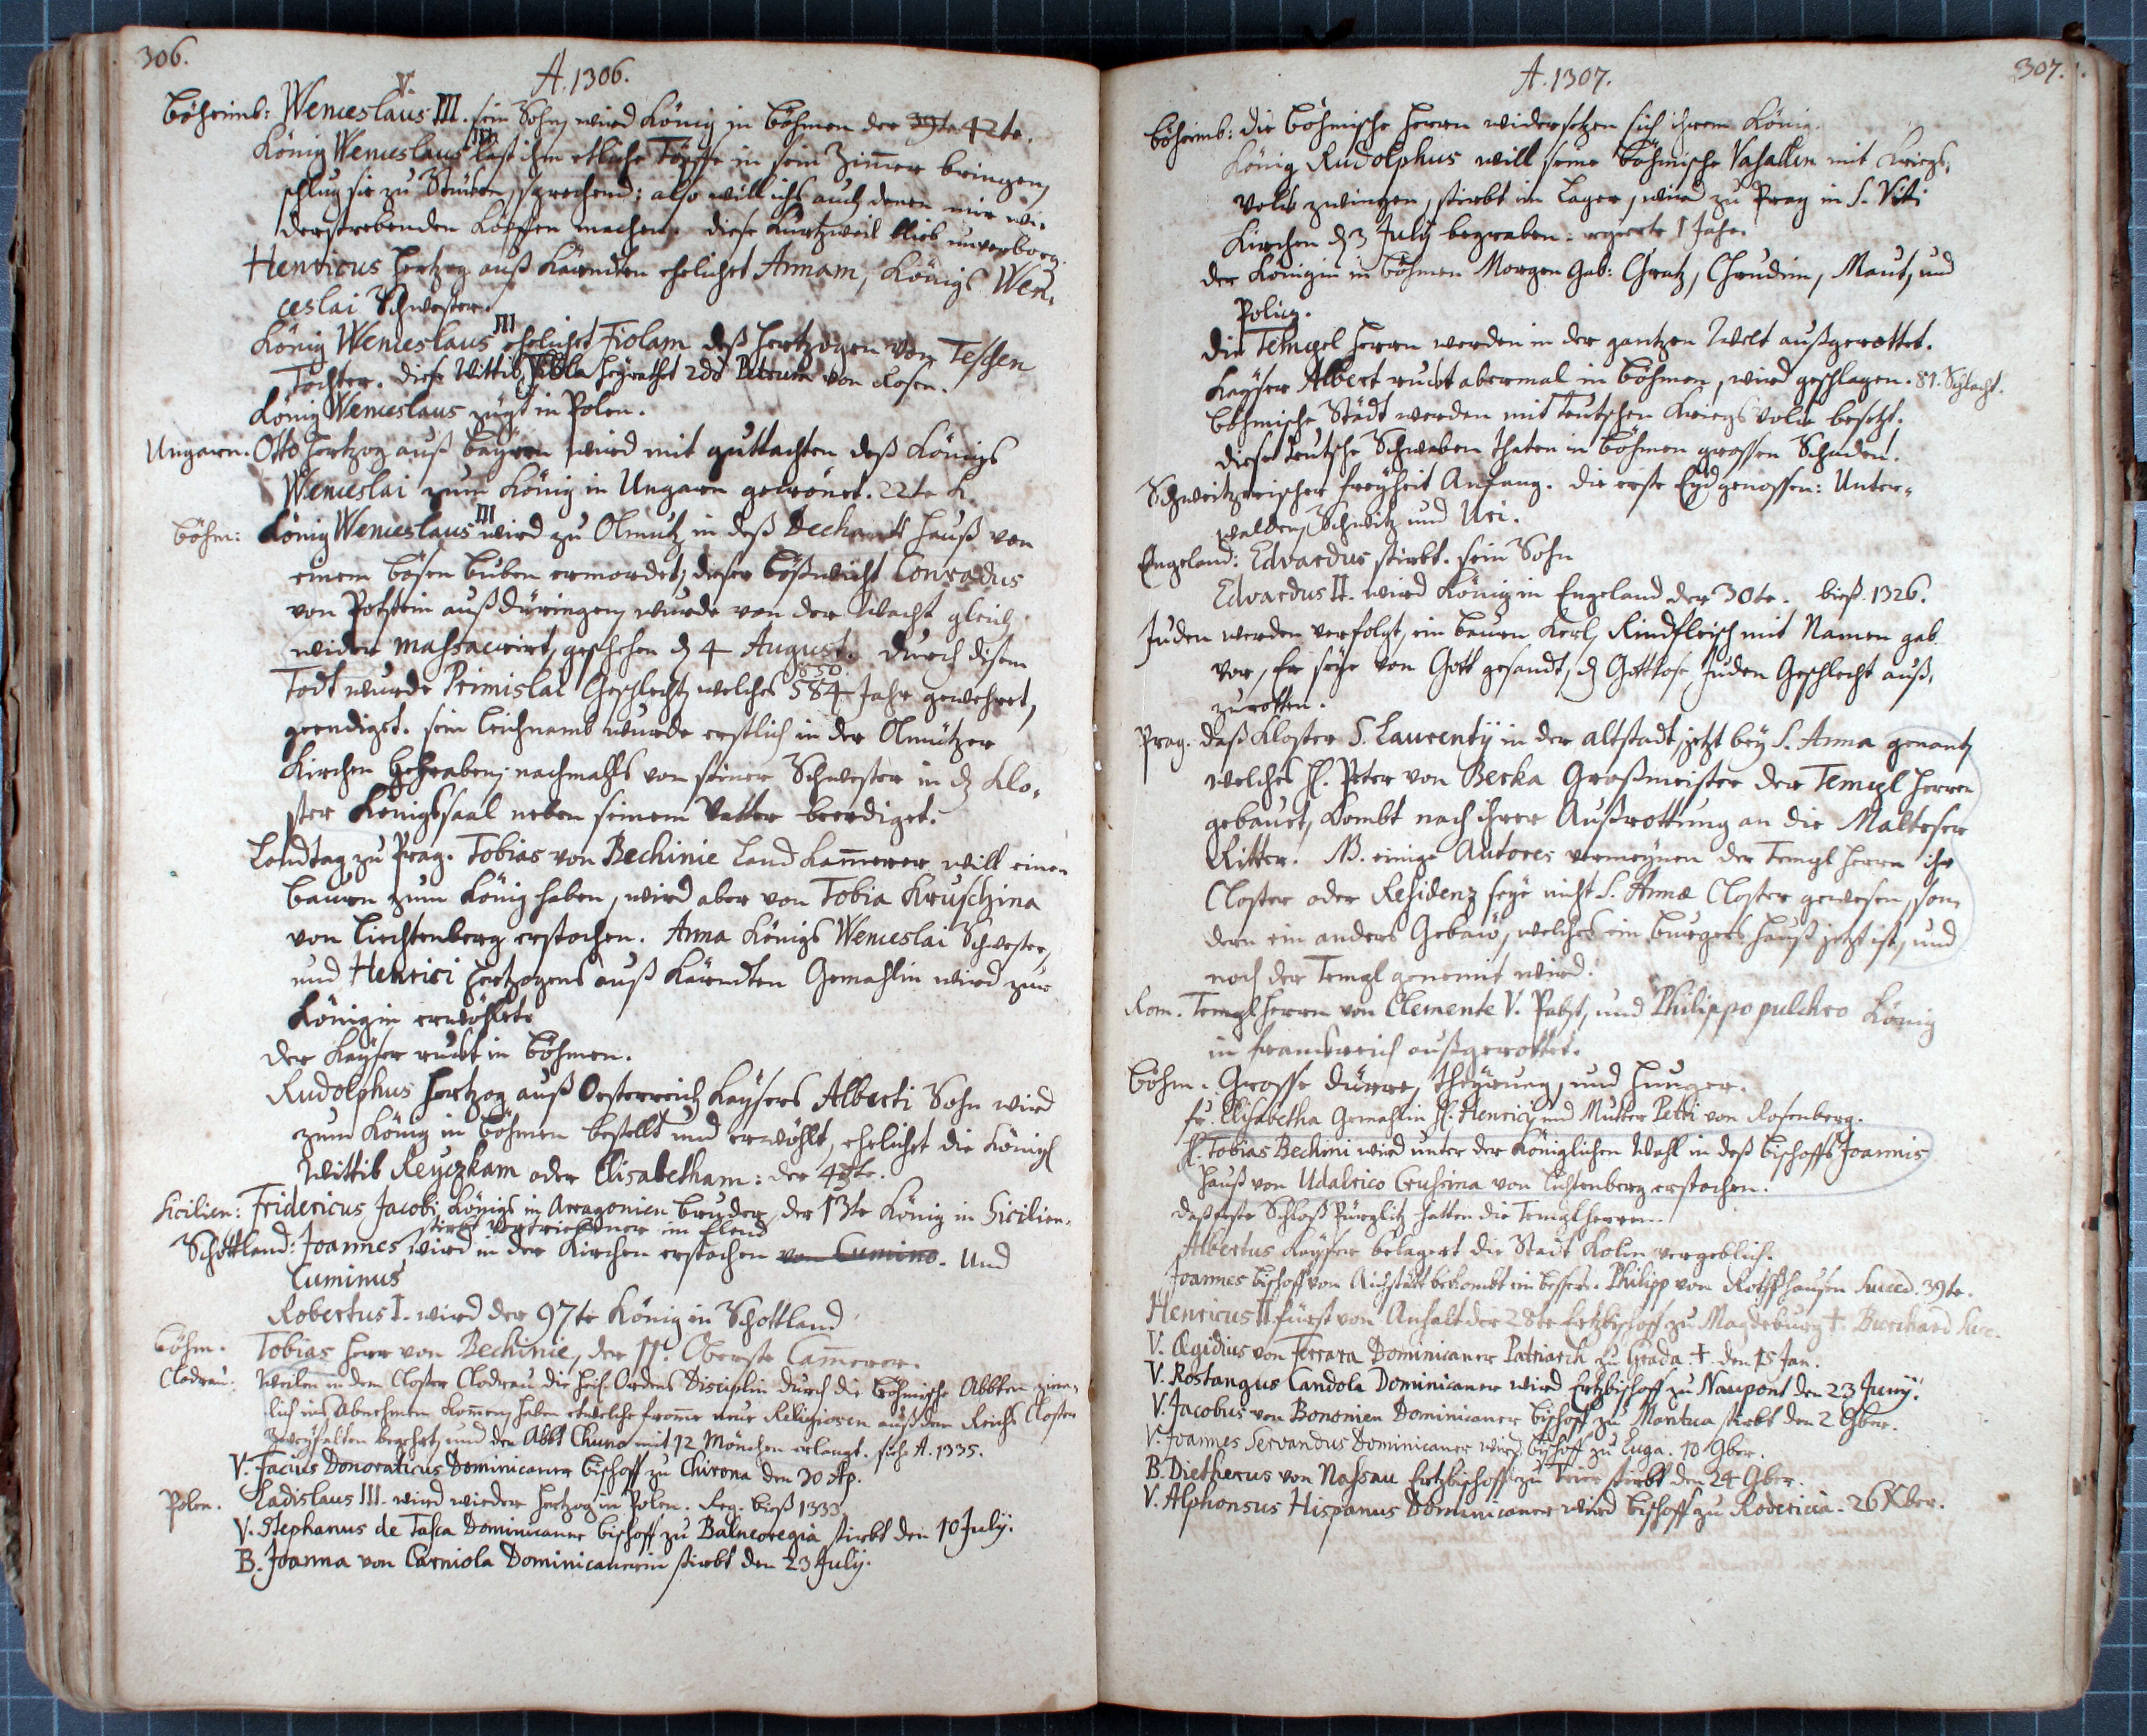 306.
A. 1306.
V.
Böheimb: Wenceslaus III. sein Sohn, wird König in Böhmen der 39te 42te.
König Wenceslaus III last ihm etliche Töpffe in sein Zimmer bringen,
schlug sie zu Stücken, sprechend: also will ichs auch denen mir wi-
derstrebenden Köpffen machen. diese Kurtzweil blieb unverborg.
Henricus Hertzog auß Kärndten ehelichet Annam, Königs Wen-
ceslai Schwester.
König Wenceslaus III ehelichet Fiolam deß Hertzogen von Teschen
Tochter. diese Wittib Viola heyrathet 2do Petrum von Rosen.
König Wenceslaus zügt in Polen.
Ungarn. Otto Hertzog auß Bayrn wird mit guttachten deß Königs
Wenceslai zum König in Ungarn gecrönet. 22te K.
Böhm: König Wenceslaus III wird zu Olmutz in deß Dechants Hauß von
einem bösen Buben ermordet, dieser Bößwicht Conradus
von Potstein auß Düringen, wurde von der Wacht gleich
wider massacrirt, geschehen d 4 August. durch disem
650.
Todt wurde Primislai Geschlecht, welches 584 Jahr gewehret,
geendigt. sein Leichnamb wurde erstlich in der Olmützer
Kirchen begraben, nachmahls von seiner Schwester in d Klo-
ster Königssaal neben seinem Vatter beerdiget.
Landtag zu Prag. Tobias von Bechinie Land Kamerer will einen
Bauren zum König haben, wird aber von Tobia Kruschina
von Liechtenberg erstochen. Anna Königs Wenceslai Schwester,
und Henrici Hertzogens auß Kärndten Gemahlin wird zur
Königin erwöhlet.
der Kayser ruckt in Böhmen.
Rudolphus Hertzog auß Oesterreich Kaysers Alberti Sohn wird
zum König in Böhmen bestellt und erwöhlt, ehelichet die Königl
Wittib Reyczkam oder Elisabetham: der 43te.
Sicilien: Fridericus Jacobi Königs in Arragonien Bruder, der 13te König in Sicilien.
stirbt Vertriebener im Elend
Schottland: Joannes wird in der Kirchen erstochen von Cumino. Und
Cuminus
Robertus I. wird der 97te König in Schottland
Böhm. Tobias Herr von Bechinie, der 11. Oberste Camerer.
Cladrau: Weilen in dem Closter Cladrau die Ordens Disciplin durch die Böhmische Abbten zim-
lich ins Abnehmen kommen, haben etwelche fromme neue Religiosen auß dem Reichs Closter
Zweyfalten begehrt, und den Abbt Chuno mit 12 Mönchen erlangt. sihe A. 1335.
V. Facius Donoraticus Dominicaner Bischoff zu Chirona den 30 Ap.
Polen. Ladislaus III. wird wieder Hertzog in Polen. Reg. bieß 1333
V. Stephanus de Tasca Dominicaner Bischoff zu Balneoregia stirbt den 10 July.
B. Joanna von Carniola Dominicanerin stirbt den 23 July.
307.
A. 1307.
Böheimb: die Böhmische Herren widersetzen sich ihrem König.
König Rudolphus will seine Böhmische Vasallen mit Kriegs-
volck zwingen, stirbt im Lager, wird zu Prag in S. Viti
Kirchen d 3 July begraben: regierte 1 Jahr.
der Königin in Böhmen Morgen Gab: Gratz, Chrudim, Maut, und
Policz.
die Tempel Herren werden in der gantzen Welt außgerottet.
Kayser Albert ruckt abermal in Böhmen, wird geschlagen. 81. Schlacht.
Böhmische Städt werden mit teutschen Kriegs volck besetzt.
diese teutsche Schwaben thaten in Böhmen grossen Schaden.
Schweitzerischer Freyheit Anfang. die erste Eydgenossen: Unter-
walden, Schwitz und Uri.
Engeland: Edvardus stirbt. sein Sohn
Edvardus II. wird König in Engeland der 30te. bieß 1326.
Juden werden verfolgt, ein Bauren Kerl, Rindfleisch mit Namen gab
vor, Er seye von Gott gesandt, d Gottlose Juden Geschlecht auß-
zurotten.
Prag. daß Kloster S. Laurentij in der altstadt, jetzt bey S. Anna genant,
welches H. Peter von Berka Großmeister der Templ Herren
gebauet, kombt nach ihrer Außrottung an die Malteser
Ritter. NB. einige Autores vermeynen der Templ Herrn ihr
Closter oder Residenz seye nicht S. Annæ Closter gewesen, son-
dern ein anders Gebäw, welches ein Burgers Hauß jetzt ist, und
noch der Templ genennt wird.
Rom. Templ Herren von Clemente V. Pabst, und Philippo pulchro König
in Franckreich außgerottet.
Böhm. Grosse dürre, theyrung, und Hunger.
Fr. Elisabetha Gemahlin H. Henricj und Mutter Petri von Rosenberg.
H. Tobias Bechini wird unter der Königlichen Wahl in deß Bischoffs Joannis
Hauß von Udalrico Crusina von Lichtenberg erstochen.
daß feste Schloß Pürglitz hatten die Templherren.
Albertus Kayser belagert die Stadt Kolin vergeblich.
Joannes Bischoff von Aichstätt bekombt ein bessers. Philipp von Succed. 39te.
Henricus II Fürst von Anhalt der 28te Ertzbischoff zu Magdeburg †. Burchard Suc.
V. Ægidius von Ferrara Dominicaner Patriarch zu Grada. † den 15 Jan.
V. Rostangus Candola Dominicaner wird Ertzbischoff zu Naupont den 23 Junij.
V. Jacobus von Bononien Dominicaner Bischoff zu Mantua stirbt den 2 9ber.
V. Joannes Servandus Dominicaner wird Bischoff zu Euga. 10 9ber.
B. Dietherus von Nassau Ertzbischoff zu Trier stirbt den 24 9ber.
V. Alphonsus Hispanus Dominicaner wird Bischoff zu Rodericia. 26 Xber.